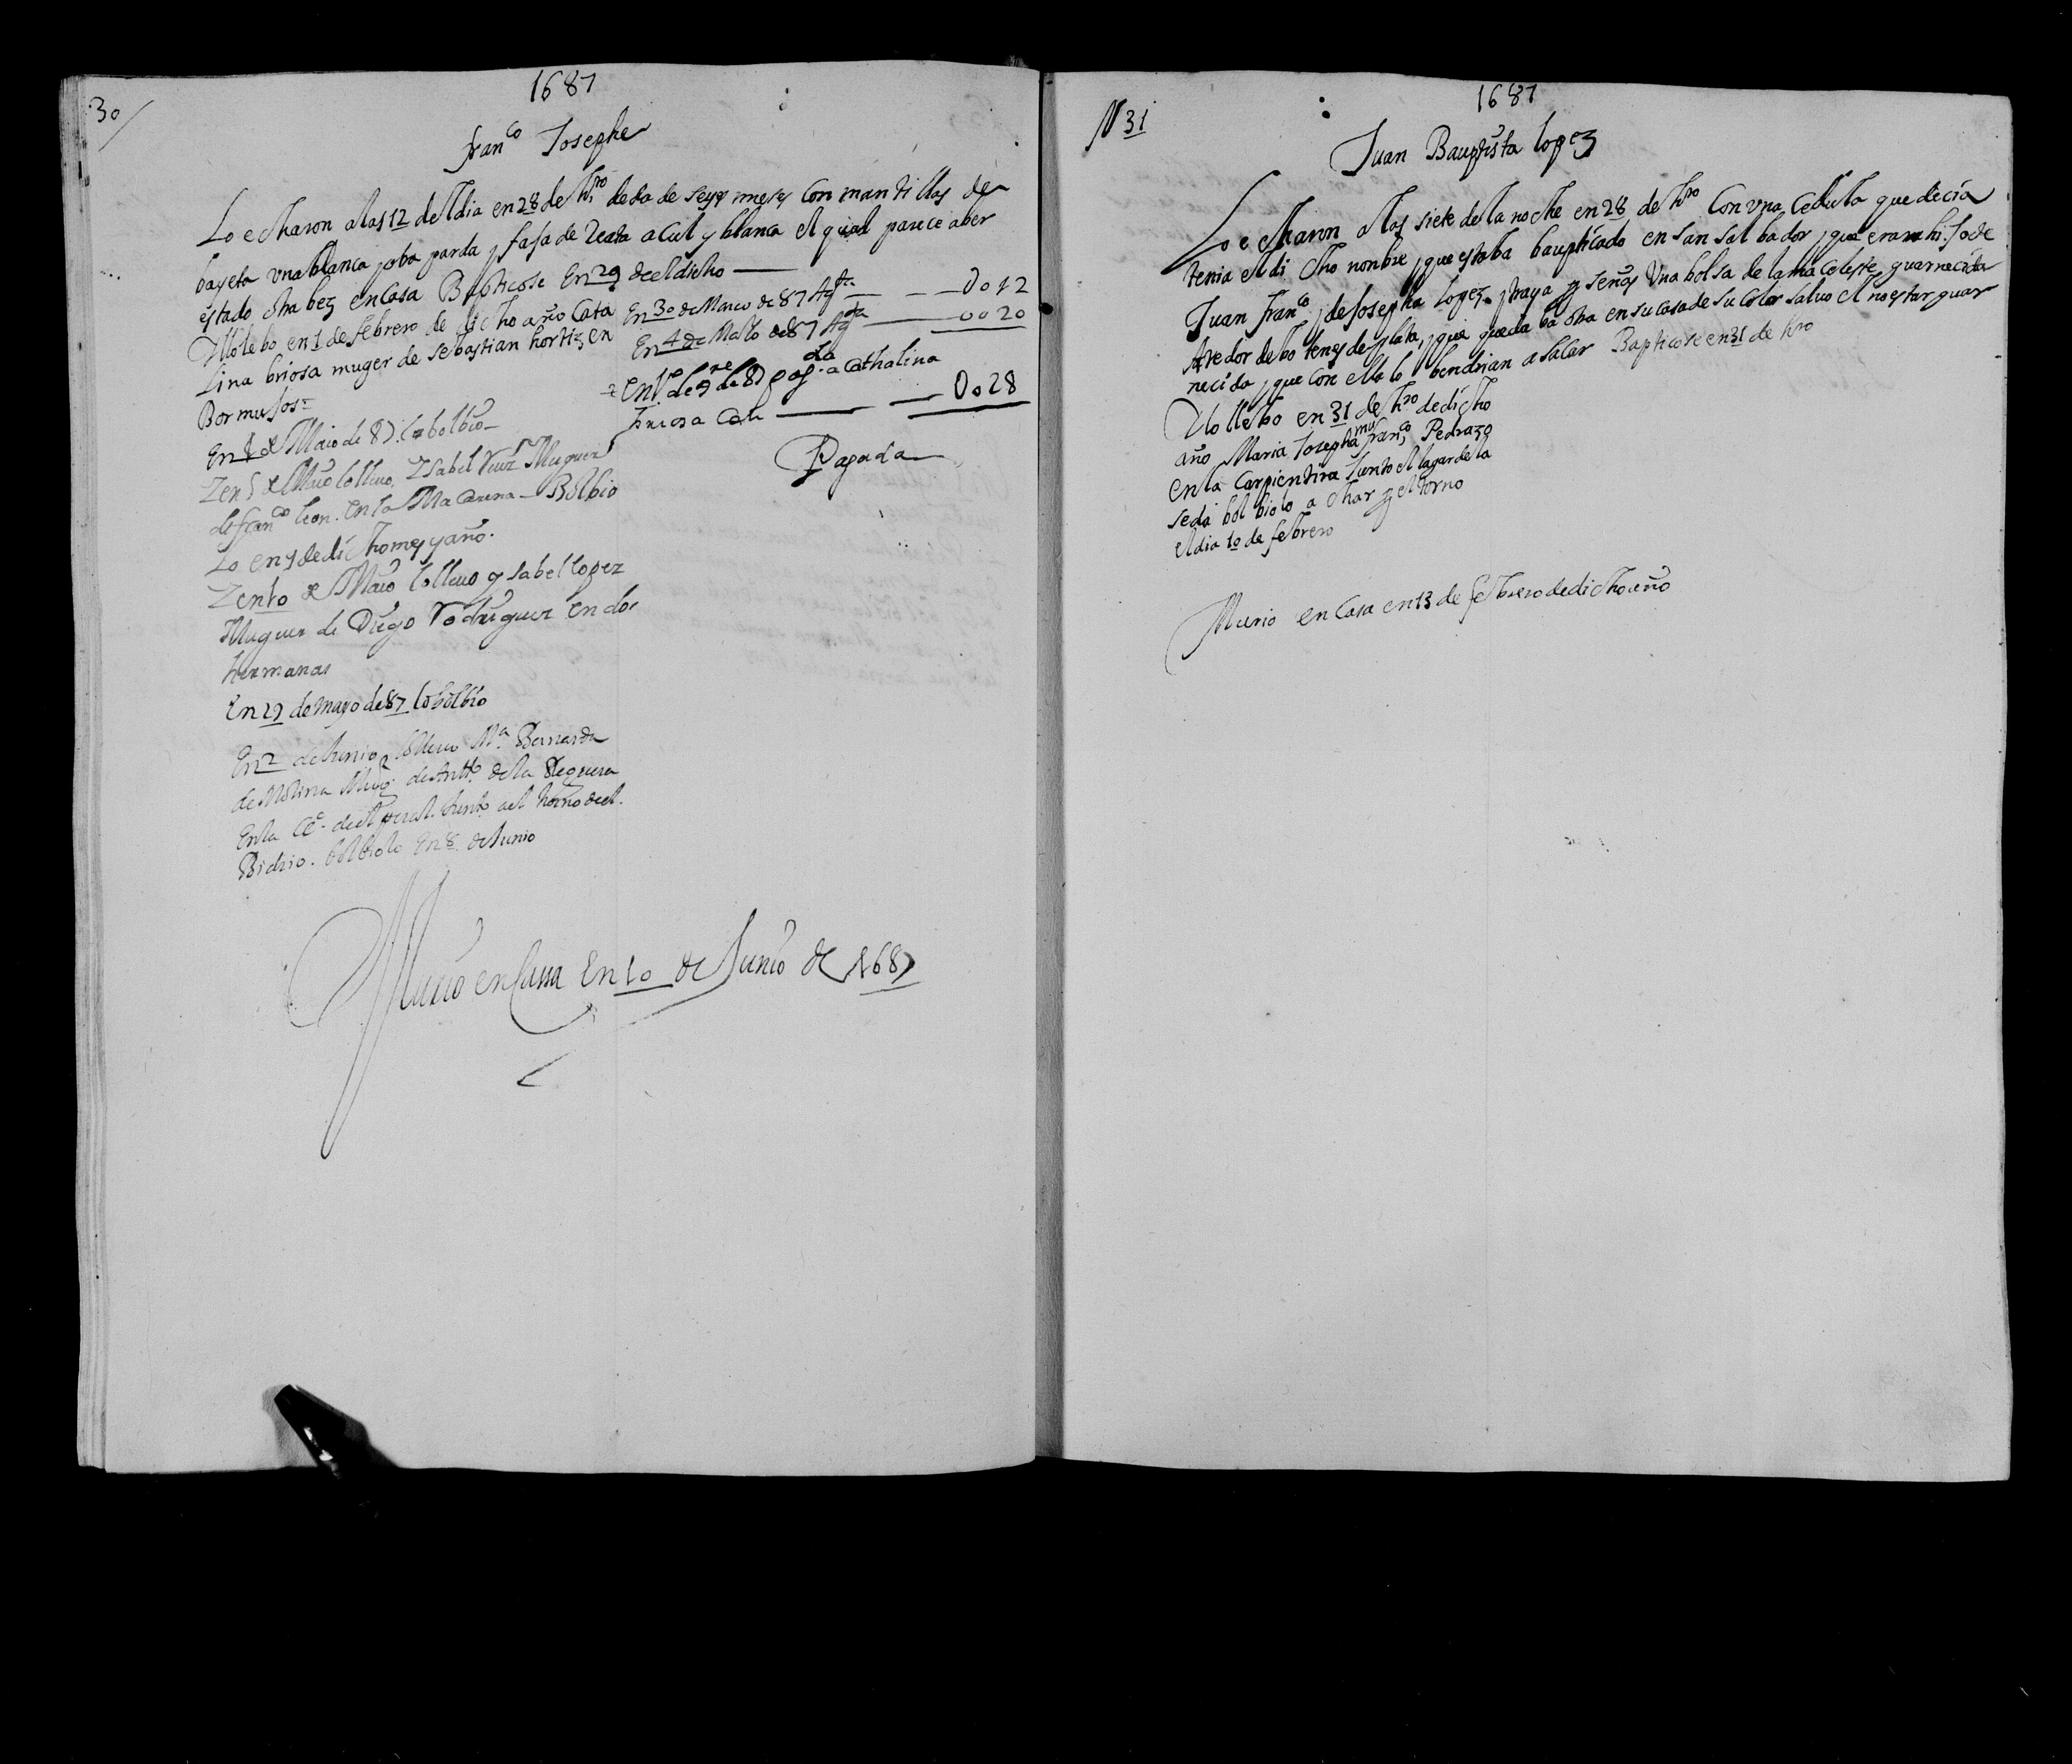 30
1687
franco Josephe
Lo echaron a las 12 del dia en 28 de hro de da de seys meses con mantillas de
bayeta vna blanca y otra parda y fafa de reata açul y blanca el qual pareçe aber
estado otra bez en casa Bapticose En 29 de el dicho
Vllolebo en 1 de febrero de dicho año Cata
lina briosa muger de sebastian hortiz en
Bormufos=
En 30 de Março de 87 Agta — 0012
En 4 de Maio de 87 Agta — 0020
pago a Cathalina
briosa Con — 0028
Pagada
En 4 de Maio de 87. lo bolbio
Y en 5 de Maio lo lleuo, Ysabel Ruiz Muguer
de franco leon. en la Macarena – Bolbio
Lo en 9 de dicho mes y año.
Y en 10 de Maio lo lleuo ysabel lopez
Muguer de Diego Rodriguez en dos
hermanas
En 29 de mayo de 87 lo bolbio
En 2 de Junio lo lleuo Ma Bernarda
de Molina Mugr de Antto de la Reguera
En la Ce de el peral. Junto a el horno de el.
Bidrio. bolbiolo En 8 de Junio
Murio en Cassa En 10 de Junio de 1687
N 31
1687
Juan Bauptista lopez
Lo echaron a las siete de la noche en 28 de hro Con vna Cedula que deçia
tenia el dicho nonbre y que estaba baupticado en san salbador y que era hijo de
Juan franco y de Josepha lopez y traya por señas Vna bolsa de lama Celeste guarneçida
Aredor de botones de plata y que quedaba otra en su casa de su Color saluo el no estar guar
neçida y que con ella lo bendrian a sacar Bapticose en 31 de hro
Vllolebo en 31 de hro de dicho
año Maria Josepha mr franco Pedrazo
en la Carpinteria Junto el lagar de la
seda bolbiolo a echar por el torno
el dia 10 de febrero
Murio en Casa en 13 de febrero de dicho año